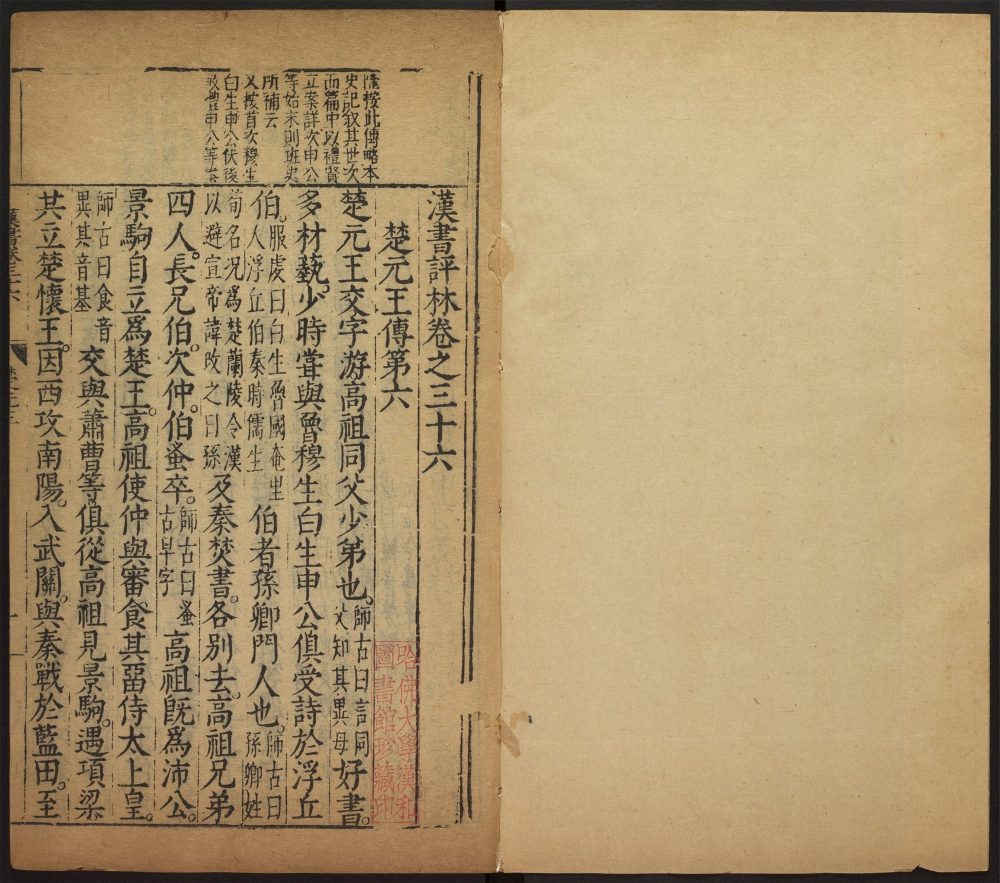 隆按此傳略本
史記叙其世次
而篇中以禮賢
立案詳次申公
等始末則班史
所補云
又按首次穆生
白生申公伏後
申公等案
漢書評林卷之三十六
楚元王傳第六
楚元王交字游高祖同父少弟也。師古曰言同父知其異母好書。
多材藝。少時嘗與魯穆生白生申公俱受詩於浮丘
伯。服虔曰白生魯國奄里人浮丘伯秦時儒生伯者孫卿門人也。師古曰孫卿姓
荀名况爲楚蘭陵令漢以避宣帝諱改之曰孫及秦焚書。各別去。高祖兄弟
四人。長兄伯。次仲。伯蚤卒。師古曰蚤古早字高祖旣爲沛公。
景駒自立爲楚王。高祖使仲與審食其畱侍太上皇。
師古曰食音異其音基交與蕭曹等俱從高祖見景駒。遇項梁
共立楚懷王。因西攻南陽。入武關。與秦戰於藍田。至
哈佛大學漢和
圖書館珍藏印